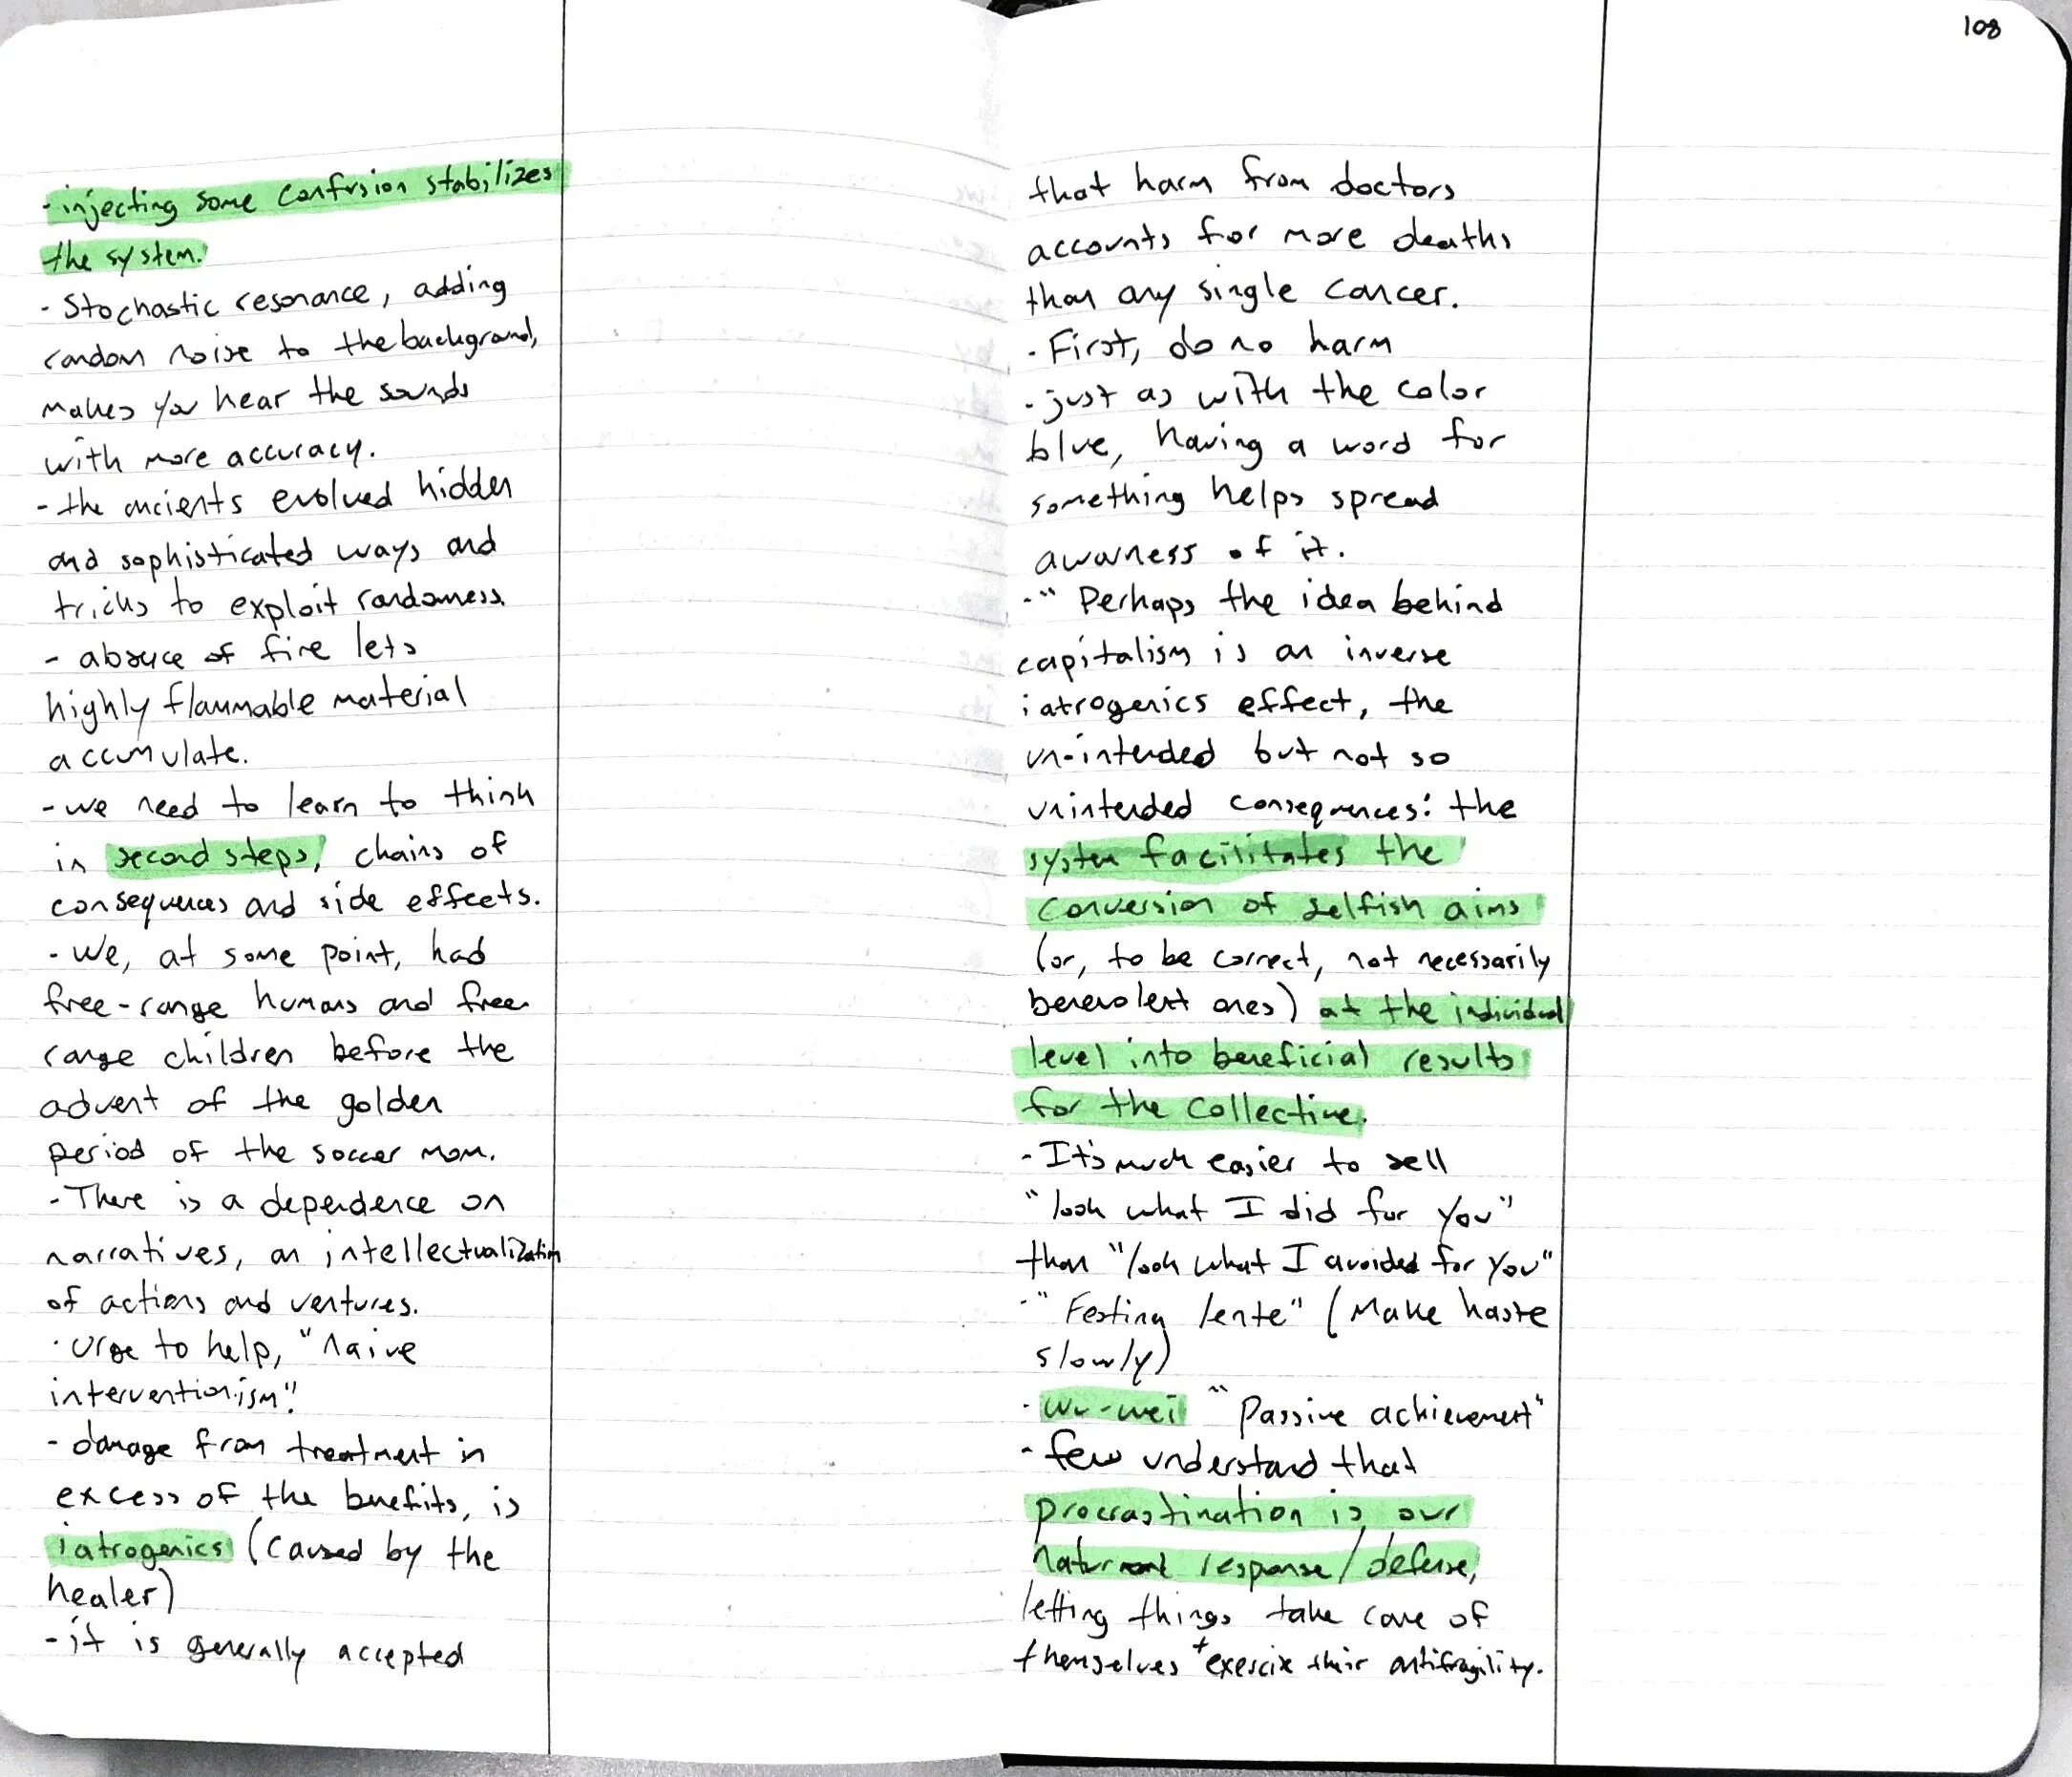 - injecting some confusion stabilizes
the system.
- Stochastic resonance, adding
random noise to the background,
makes you hear the sounds
with more accuracy.
- the ancients evolved hidden
and sophisticated ways and
tricks to exploit randomness.
- absence of fire lets
highly flammable material
accumulate.
- we need to learn to think
in second steps, chains of
consequences and side effects.
- We, at some point, had
free-range humans and free-
range children before the
advent of the golden
period of the soccer mom.
- There is a dependence on
narratives, an intellectualization
of actions and ventures.
- urge to help, "naive
interventionism".
- damage from treatment in
excess of the benefits, is
iatrogenics (caused by the
healer)
- it is generally accepted
108
that harm from doctors
accounts for more deaths
than any single cancer.
- First, do no harm
- just as with the color
blue, having a word for
something helps spread
awarness of it.
- " Perhaps the idea behind
capitalism is an inverse
iatrogenics effect, the
un-intended but not so
unintended consequences: the
system facilitates the
conversion of selfish aims
(or, to be correct, not necessarily
benevolent ones) at the individual
level into beneficial results
for the collective.
- It's much easier to sell
"look what I did for you"
than "look what I avoided for you"
- "Festina lente" (Make haste
slowly)
- wu-wei "passive achievement"
- few understand that
procrastination is our
natural response/defense,
letting things take care of
themselves + exercise their antifragility.